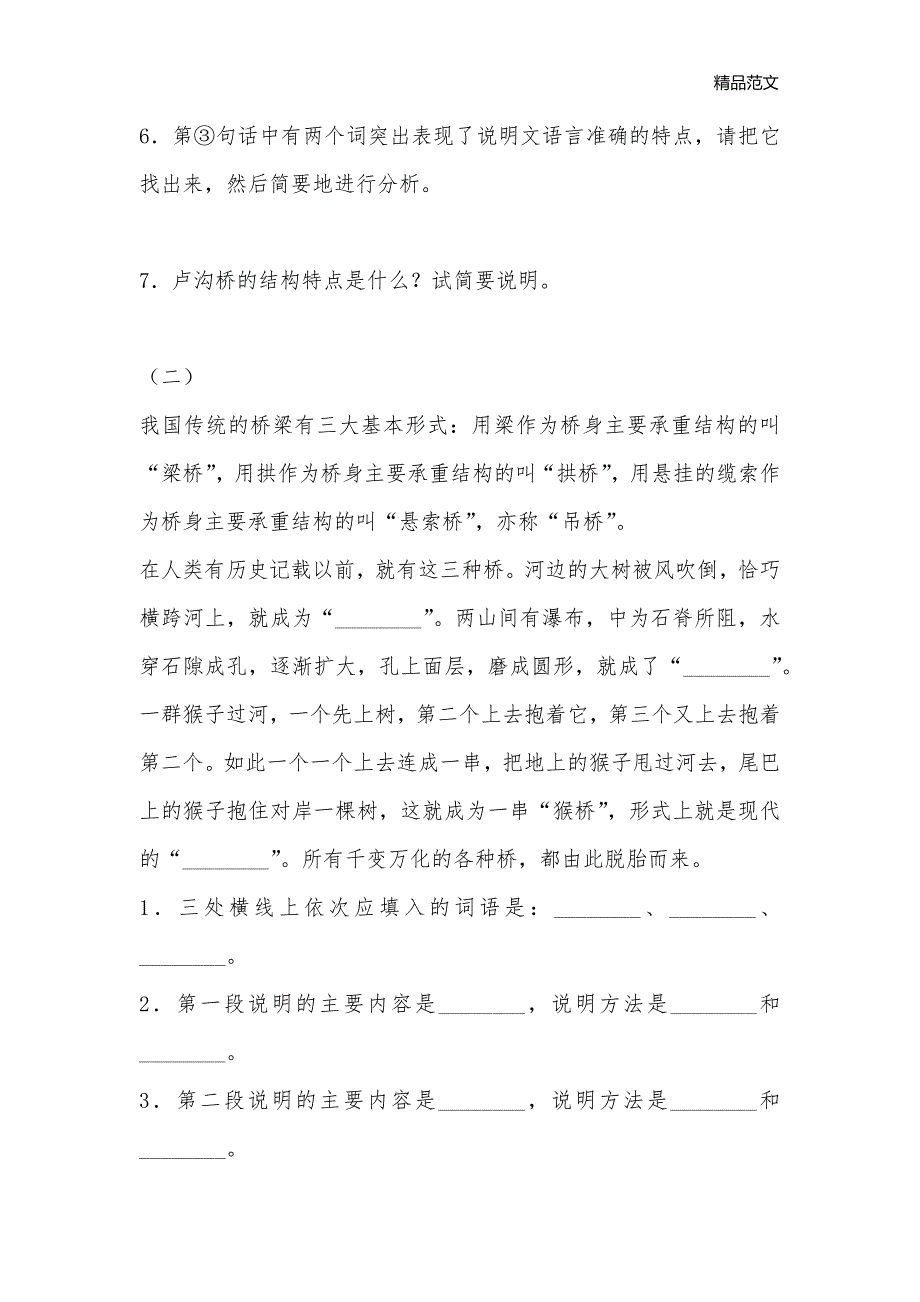 精品范文
6．第③句话中有两个词突出表现了说明文语言准确的特点，请把它
找出来，然后简要地进行分析。
7．卢沟桥的结构特点是什么？试简要说明。
（二）
我国传统的桥梁有三大基本形式：用梁作为桥身主要承重结构的叫
“梁桥”，用拱作为桥身主要承重结构的叫“拱桥”，用悬挂的缆索作
为桥身主要承重结构的叫“悬索桥”，亦称“吊桥”。
在人类有历史记载以前，就有这三种桥。河边的大树被风吹倒，恰巧
横跨河上，就成为“________”。两山间有瀑布，中为石脊所阻，水
穿石隙成孔，逐渐扩大，孔上面层，磨成圆形，就成了“________”。
一群猴子过河，一个先上树，第二个上去抱着它，第三个又上去抱着
第二个。如此一个一个上去连成一串，把地上的猴子甩过河去，尾巴
上的猴子抱住对岸一棵树，这就成为一串“猴桥”，形式上就是现代
的“________”。所有千变万化的各种桥，都由此脱胎而来。
1．三处横线上依次应填入的词语是：________、________、
________。
2．第一段说明的主要内容是________，说明方法是________和
________。
3．第二段说明的主要内容是________，说明方法是________和
________。